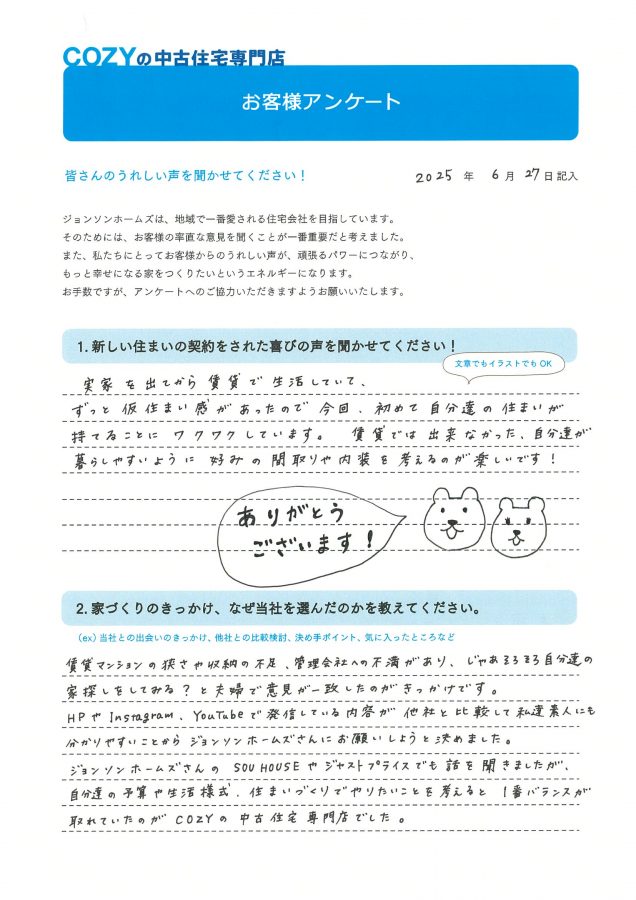 COZYの中古住宅専門店
お客様アンケート
皆さんのうれしい声を聞かせてください！
2025 年 6 月 27 日 記入
ジョンソンホームズは、地域で一番愛される住宅会社を目指しています。
そのためには、お客様の率直な意見を聞くことが一番重要だと考えました。
また、私たちにとってお客様からのうれしい声が、頑張るパワーにつながり、
もっと幸せになる家をつくりたいというエネルギーになります。
お手数ですが、アンケートへのご協力いただきますようお願いいたします。
1. 新しい住まいの契約をされた喜びの声を聞かせてください！
文章でもイラストでも OK
実家を出てから賃貸で生活していて、
ずっと仮住まい感があったので今回、初めて自分達の住まいが
持てることにワクワクしています。 賃貸では出来なかった、自分達が
暮らしやすいように好みの間取りや内装を考えるのが楽しいです！
ありがとう
ございます！
2. 家づくりのきっかけ、なぜ当社を選んだのかを教えてください。
（ex）当社との出会いのきっかけ、他社との比較検討、決め手ポイント、気に入ったところなど
賃貸マンションの狭さや収納の不足、管理会社への不満があり、じゃあそろそろ自分達の
家探しをしてみる？と夫婦で意見が一致したのがきっかけです。
HPやInstagram、YouTubeで発信している内容が他社と比較して私達素人にも
分かりやすいことからジョンソンホームズさんにお願いしようと決めました。
ジョンソンホームズさんの SOU HOUSEやジャストプライスでも話を聞きましたが、
自分達の予算や生活様式、住まいづくりでやりたいことを考えると 1番バランスが
取れていたのが COZYの中古住宅専門店でした。